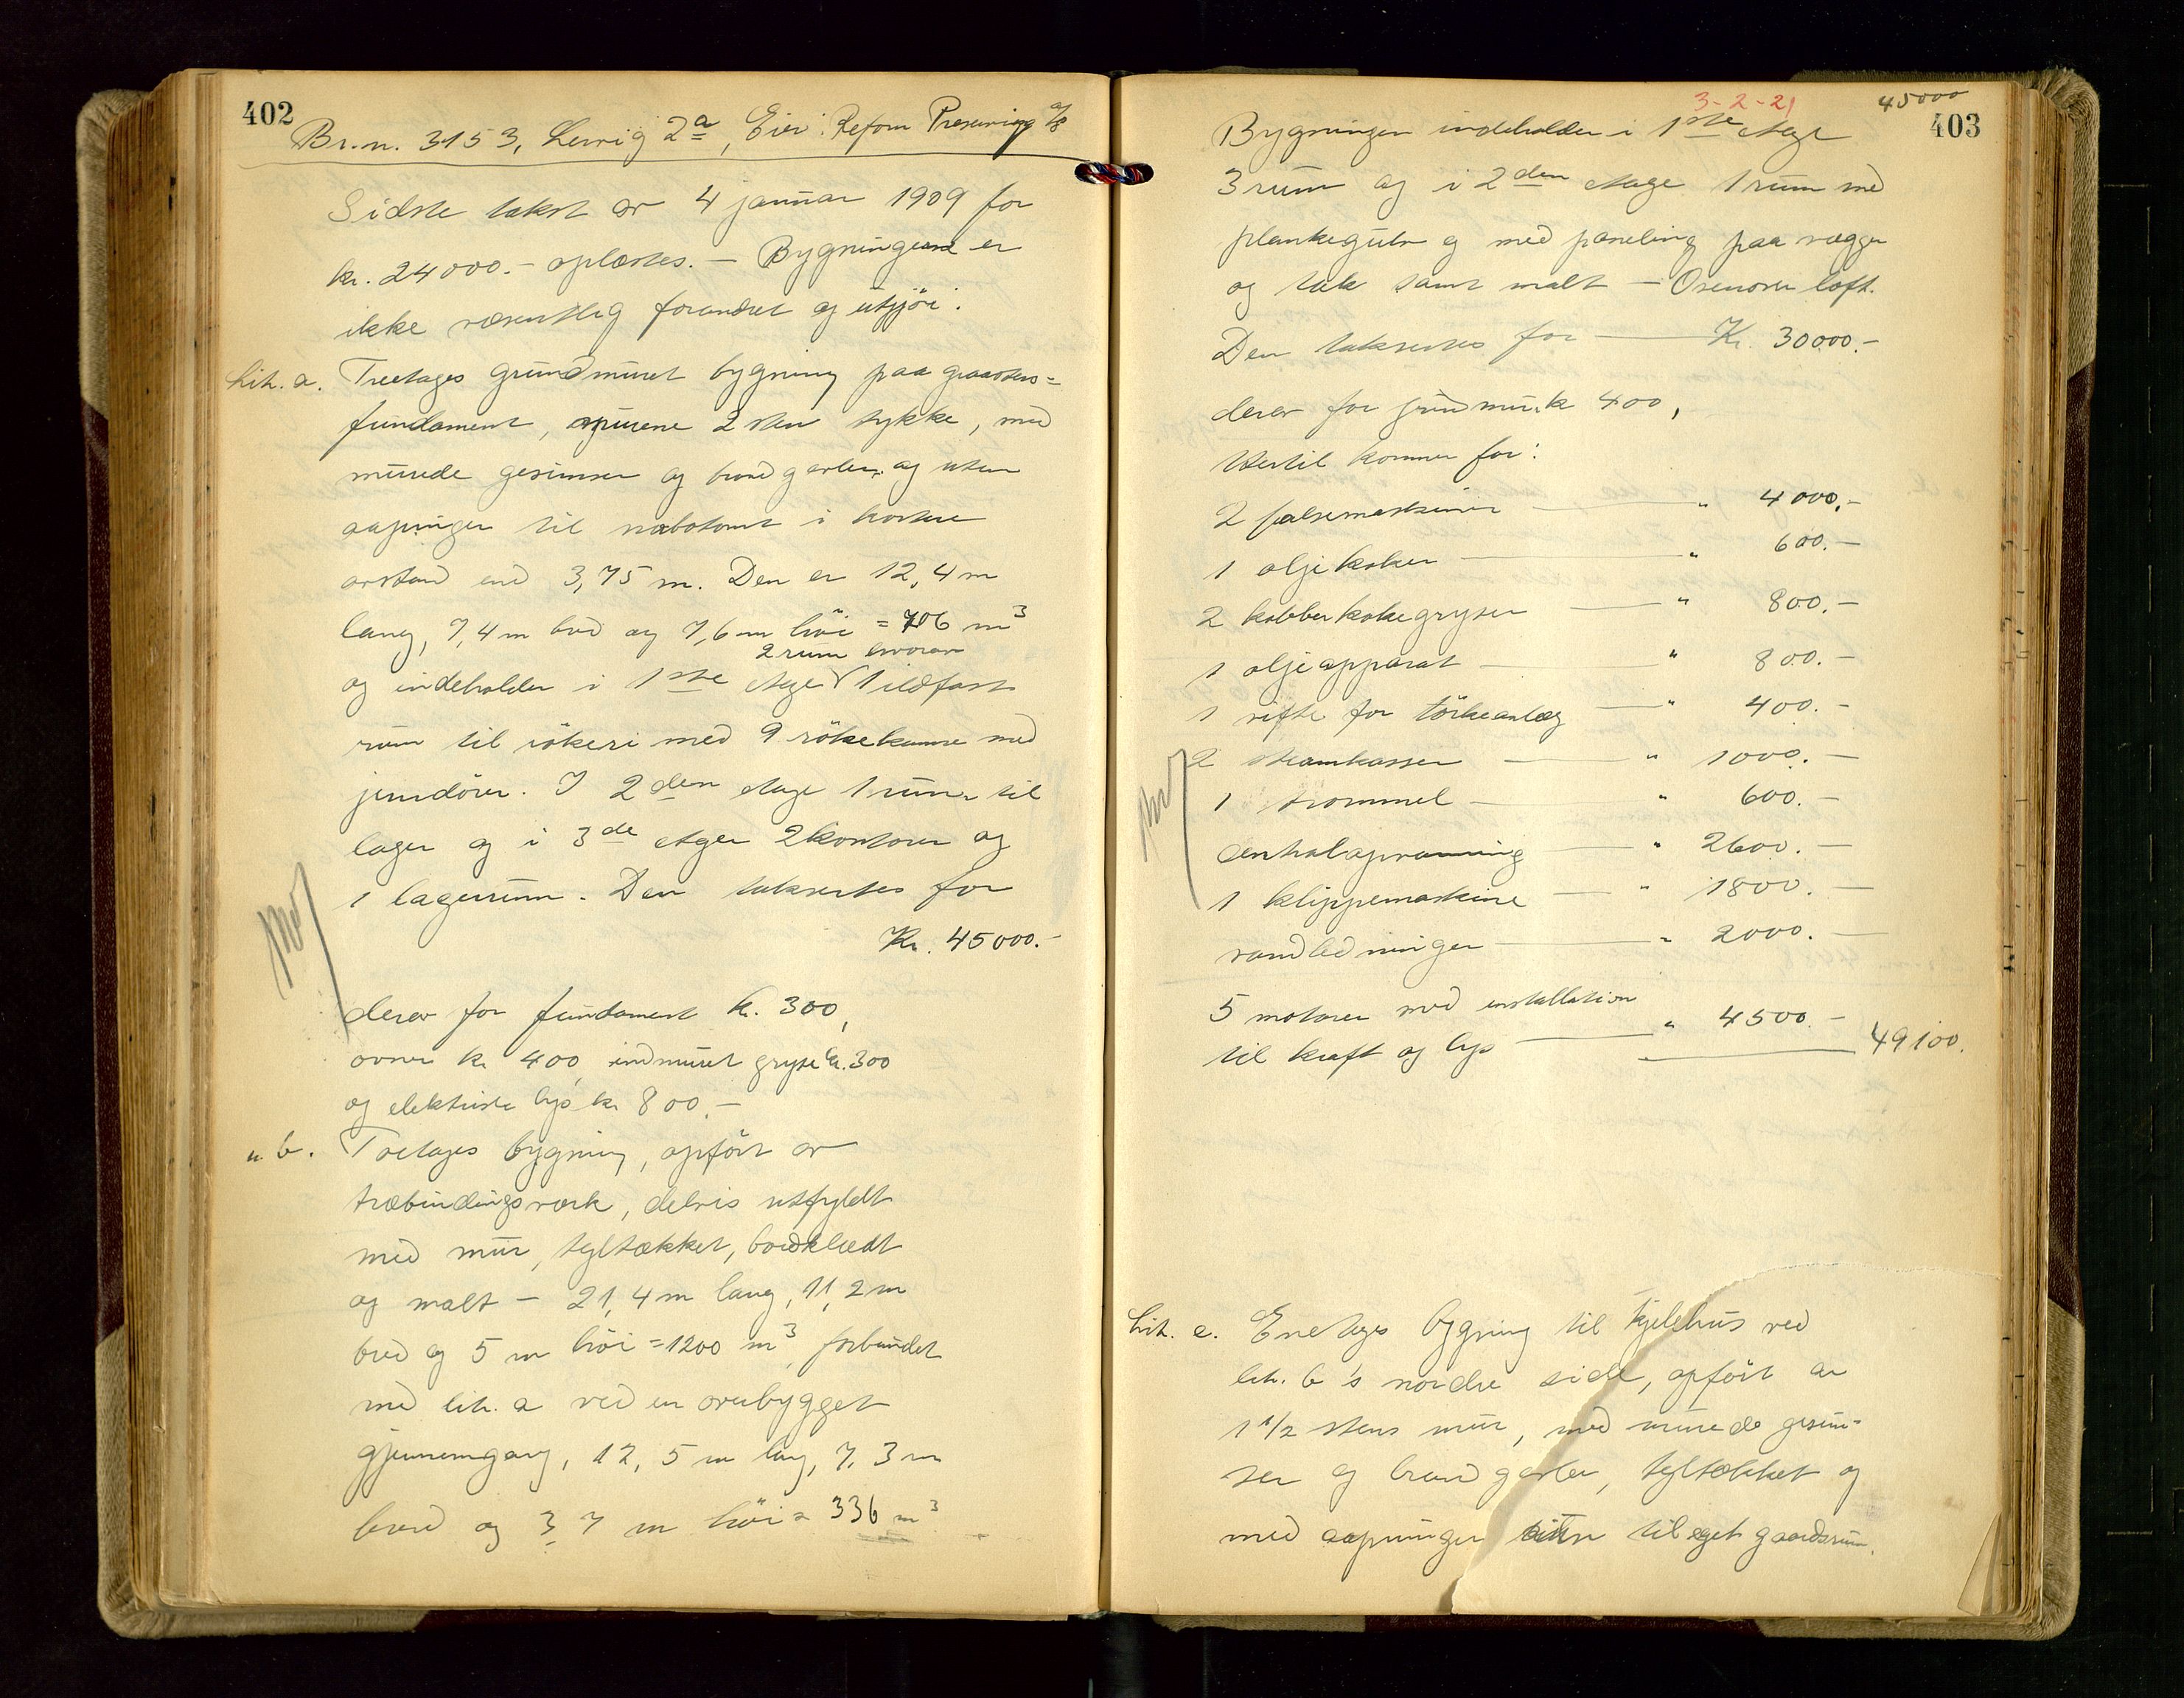 402
Br.n. 3153, Lervig 2a, Eier: Reform Preserving A/S
Sidste takst av 4 januar 1909 for
kr. 24000.- oplæstes. - Bygningene er
ikke væsentlig forandret og utgjör:
Lit. a. Treetages grundmuret bygning paa graastens=
fundament, murene 2 sten tykke, med
murede gesimser og brandgavler og uten
aapninger til nabotomt i kortere
avstand end 3,75 m. Den er 12,4 m
lang, 7,4 m bred og 7,6 m höi = 706 m3
2 rum hvorav
og indeholder i 1ste etage 1 ildfast
rum til rökeri med 9 rökekamre med
jerndörer. I 2den etage 1 rum til
lager og i 3de etage 2 kontorer og
1 lagerrum. Den taksertes for
Kr. 45000.-
derav for fundament kr. 300,
ovner kr 400, indmuret gryte kr. 300
og elektriske lys kr 800.-
" b. Toetages bygning, opfört av
træbindingsverk, delvis utfyldt
med mur, tegltækket, bordklædt
og malt - 21,4 m lang, 11,2 m
bred og 5 m höi = 1200 m3, forbundet
med lit. a ved en overbygget
gjennemgang, 12,5 m lang, 7,3 m
bred og 3,7 m höi = 336 m3
3-2-21
45000
403
Bygningen indeholder i 1ste etage
3 rum og i 2den etage 1 rum med
plankegulv og med paneling paa vægger
og tak samt malt - Ovenover loft.
Den taksertes for Kr. 30000.-
derav for grundmur k 400,
Hertil kommer for:
2 falsemaskiner " 4000.-
1 oljekoker " 600.-
2 kobberkokegryter " 800.-
1 oljeapparat " 800.-
1 vifte for törkeanlæg " 400.-
2 steamkasser " 1000.-
1 trommel " 600.-
Centralopvarming " 2600.-
1 klippemaskine " 1800.-
vandledninger " 2000.-
5 motorer med installation
til kraft og lys " 4500.- 49100.
Lit. c. Enetages bygning til kjelehus ved
lit. b's nordre side, opfört av
1 1/2 stens mur, med murede gesim-
ser og brandgavler, tegltækket og
med aapninger til eget gaardsrum.